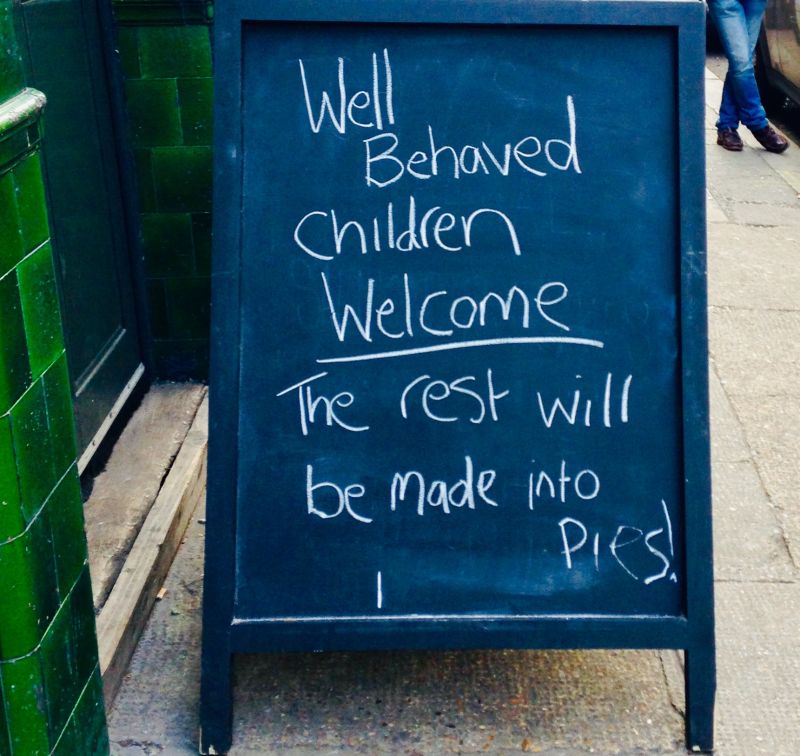 Well
Behaved
Children
Welcome
The rest will
be made into
Pies!